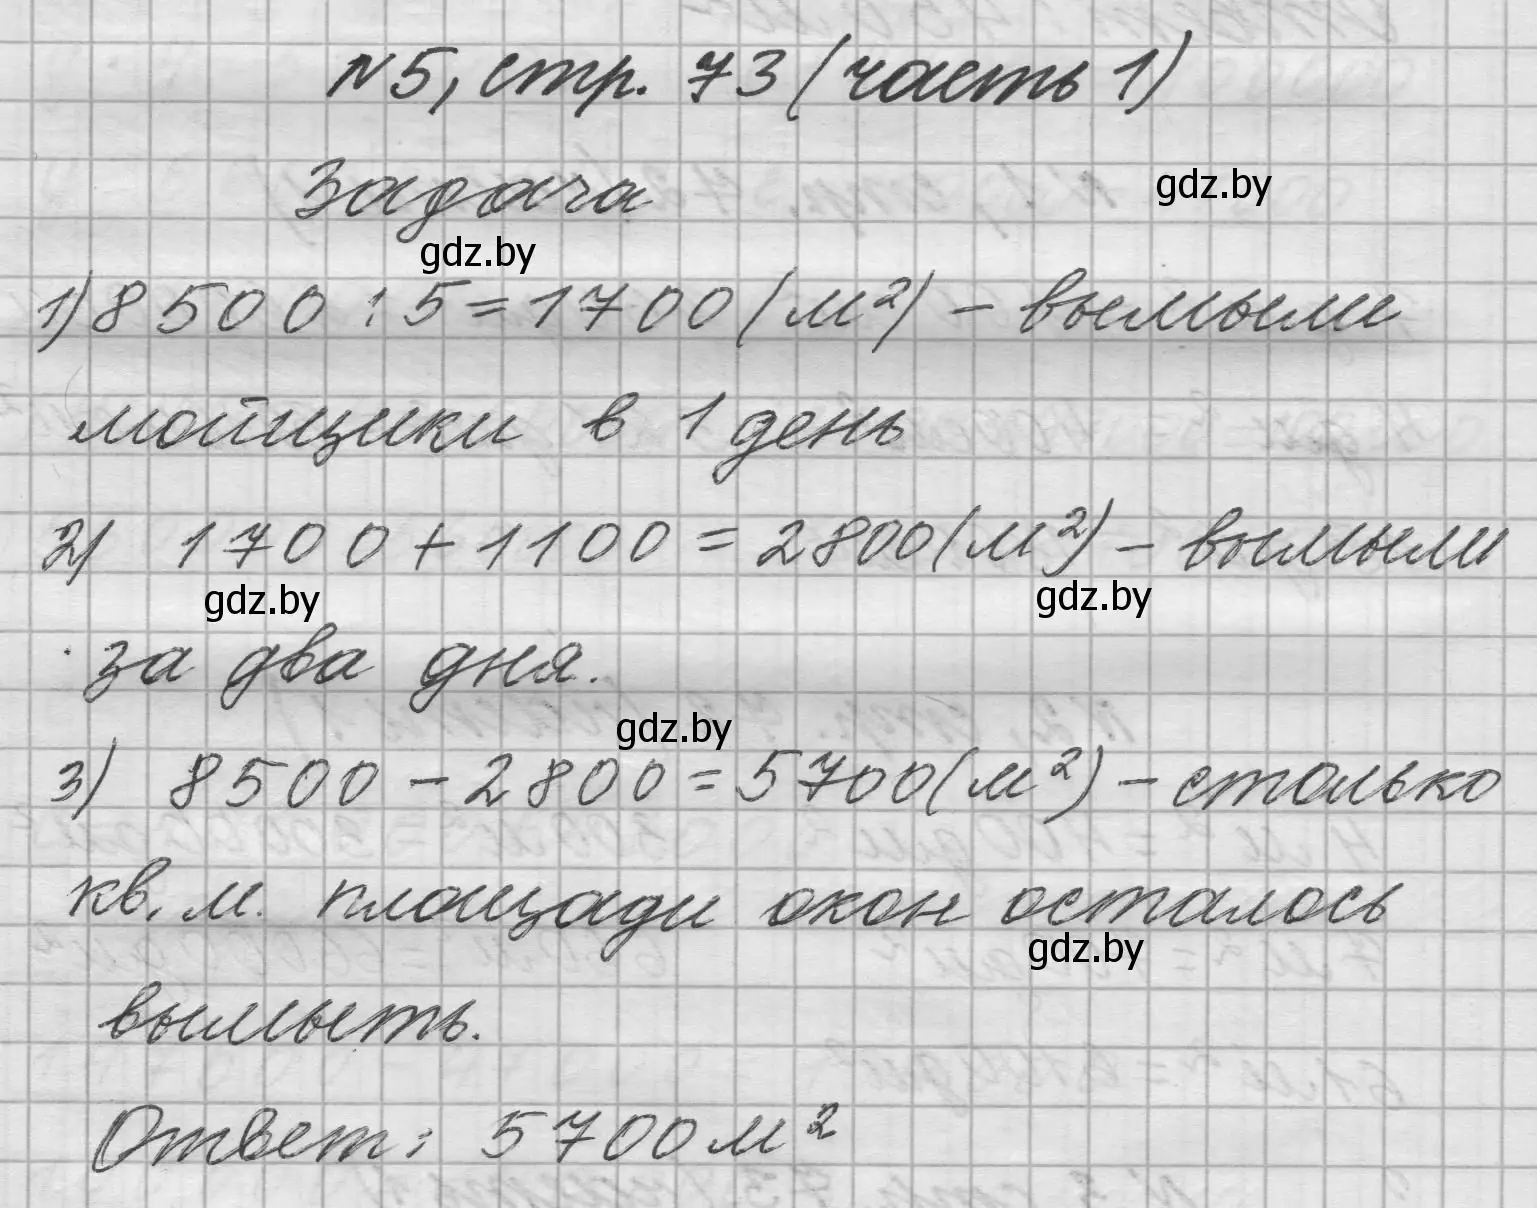 №5, стр. 73 (часть 1)
Задача
gdz.by
gdz.by
1) 8500 : 5 = 1700 (м²) – вымыли
мойщики в 1 день
2) 1700 + 1100 = 2800 (м²) – вымыли
gdz.by
gdz.by
за два дня.
gdz.by
3) 8500 – 2800 = 5700 (м²) – столько
кв. м. площади окон осталось
gdz.by
вымыть.
Ответ: 5700 м²